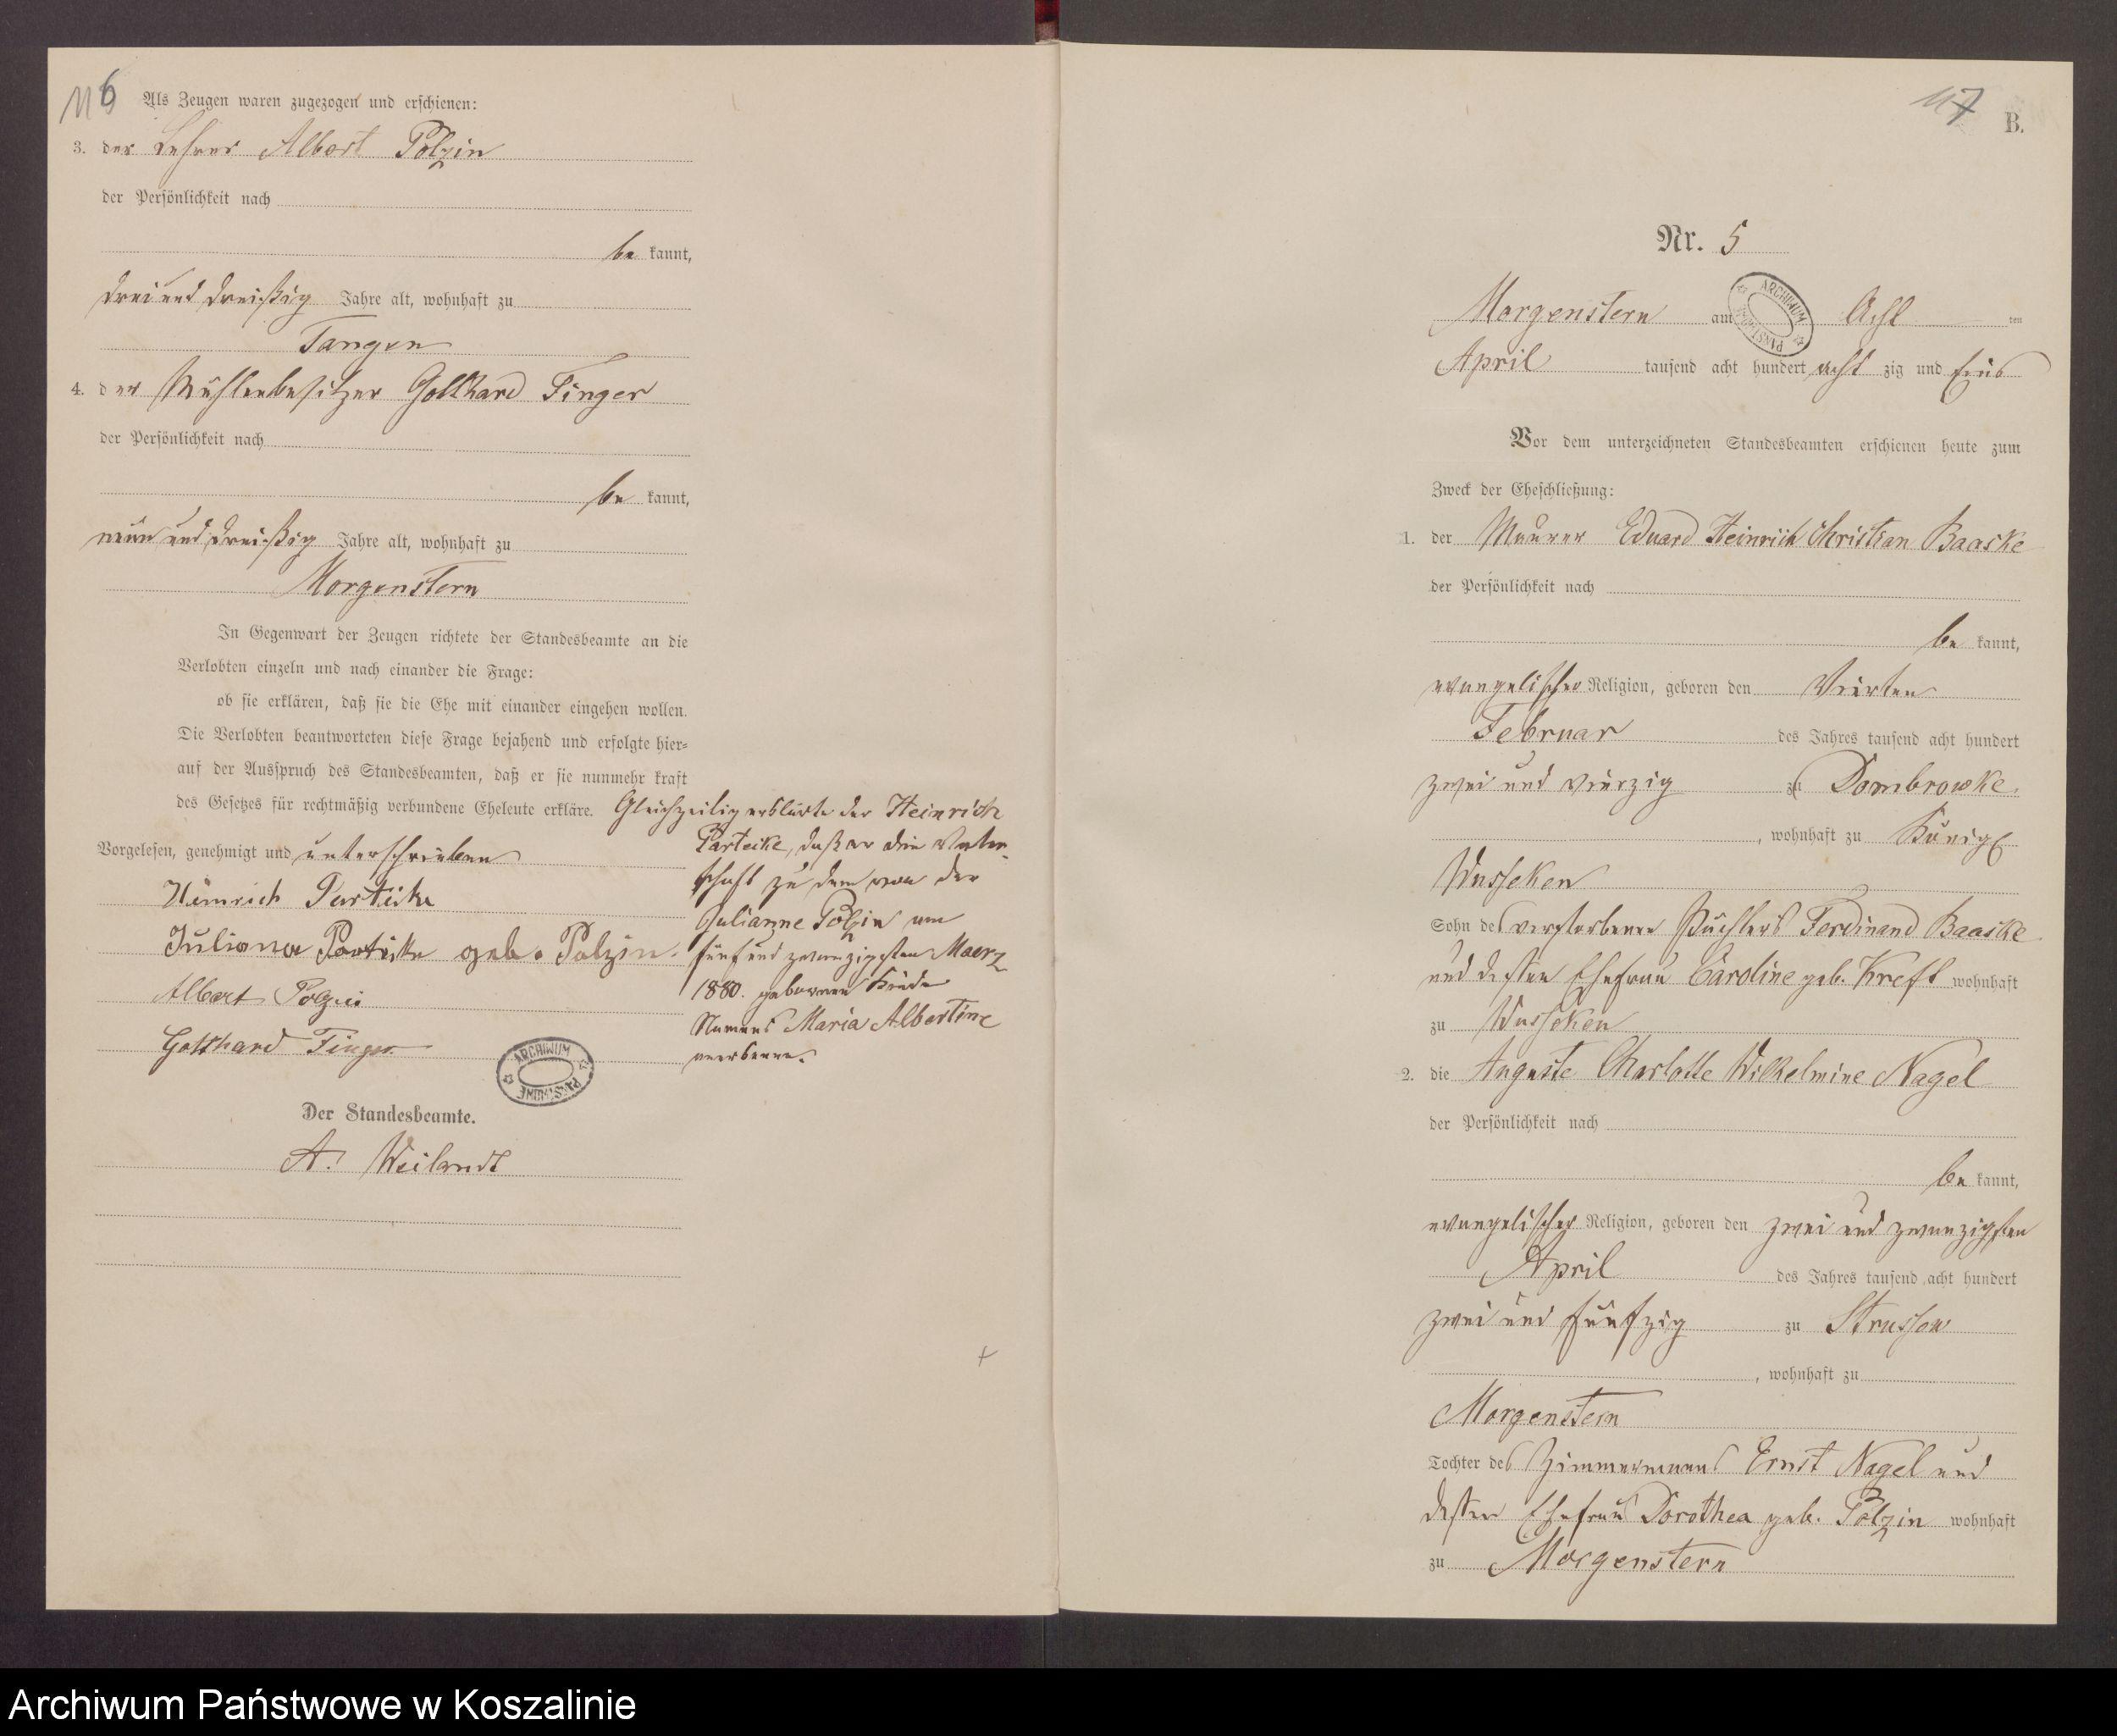 116
Als Zeugen waren zugezogen und erschienen:
3. der Lehrer Albert Polzin
der Persönlichkeit nach
be kannt,
drei und dreißig Jahre alt, wohnhaft zu
Tangen
4. der Mühlenbesitzer Gotthard Finger
der Persönlichkeit nach
be kannt,
neun und dreißig Jahre alt, wohnhaft zu
Morgenstern
In Gegenwart der Zeugen richtete der Standesbeamte an die
Verlobten einzeln und nach einander die Frage:
ob sie erklären, daß sie die Ehe mit einander eingehen wollen.
Die Verlobten beantworteten diese Frage bejahend und erfolgte hier=
auf der Ausspruch des Standesbeamten, daß er sie nunmehr kraft
des Gesetzes für rechtmäßig verbundene Eheleute erkläre. Gleichzeitig erklärte der Heinrich
Parteike, daß er die Vater-
schaft zu dem von der
Julianne Polzin am
fünf und zwanzigsten Maerz
1880. geborenen Kinde
Namens Maria Albertine
anerkenne.
Vorgelesen, genehmigt und unterschrieben
Heinrich Parteike
Juliana Parteike geb. Polzin.
Albert Polzin
Gotthard Finger
ARCHIWUM PAŃSTWOWE
Der Standesbeamte.
A. Weilandt
117
B.
Nr. 5
Morgenstern am Acht ten
ARCHIWUM PAŃSTWOWE
April tausend acht hundert acht zig und Eins
Vor dem unterzeichneten Standesbeamten erschienen heute zum
Zweck der Eheschließung:
1. der Maurer Eduard Heinrich Christian Baaske
der Persönlichkeit nach
be kannt,
evangelischer Religion, geboren den Vierten
Februar des Jahres tausend acht hundert
zwei und vierzig zu Dombrowke.
, wohnhaft zu Königl
Wusseken
Sohn des verstorbenen Ferdinand Baaske
und dessen Ehefrau Caroline geb. Kreft wohnhaft
zu Wusseken
2. die Auguste Charlotte Wilhelmine Nagel
der Persönlichkeit nach
be kannt,
evangelischer Religion, geboren den zwei und zwanzigsten
April des Jahres tausend acht hundert
zwei und fünfzig zu Strussow
, wohnhaft zu
Morgenstern
Tochter des Zimmermanns Ernst Nagel und
dessen Ehefrau Dorothea geb. Polzin wohnhaft
zu Morgenstern
Archiwum Państwowe w Koszalinie